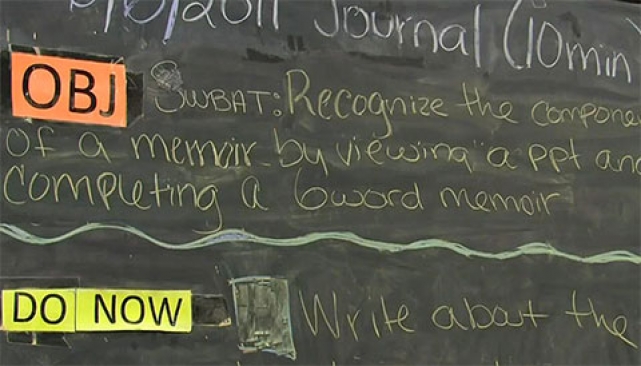 2011 Journal (10min
OBJ SWBAT: Recognize the compone
of a memoir by viewing a ppt and
completing a 6word memoir
DO NOW Write about the